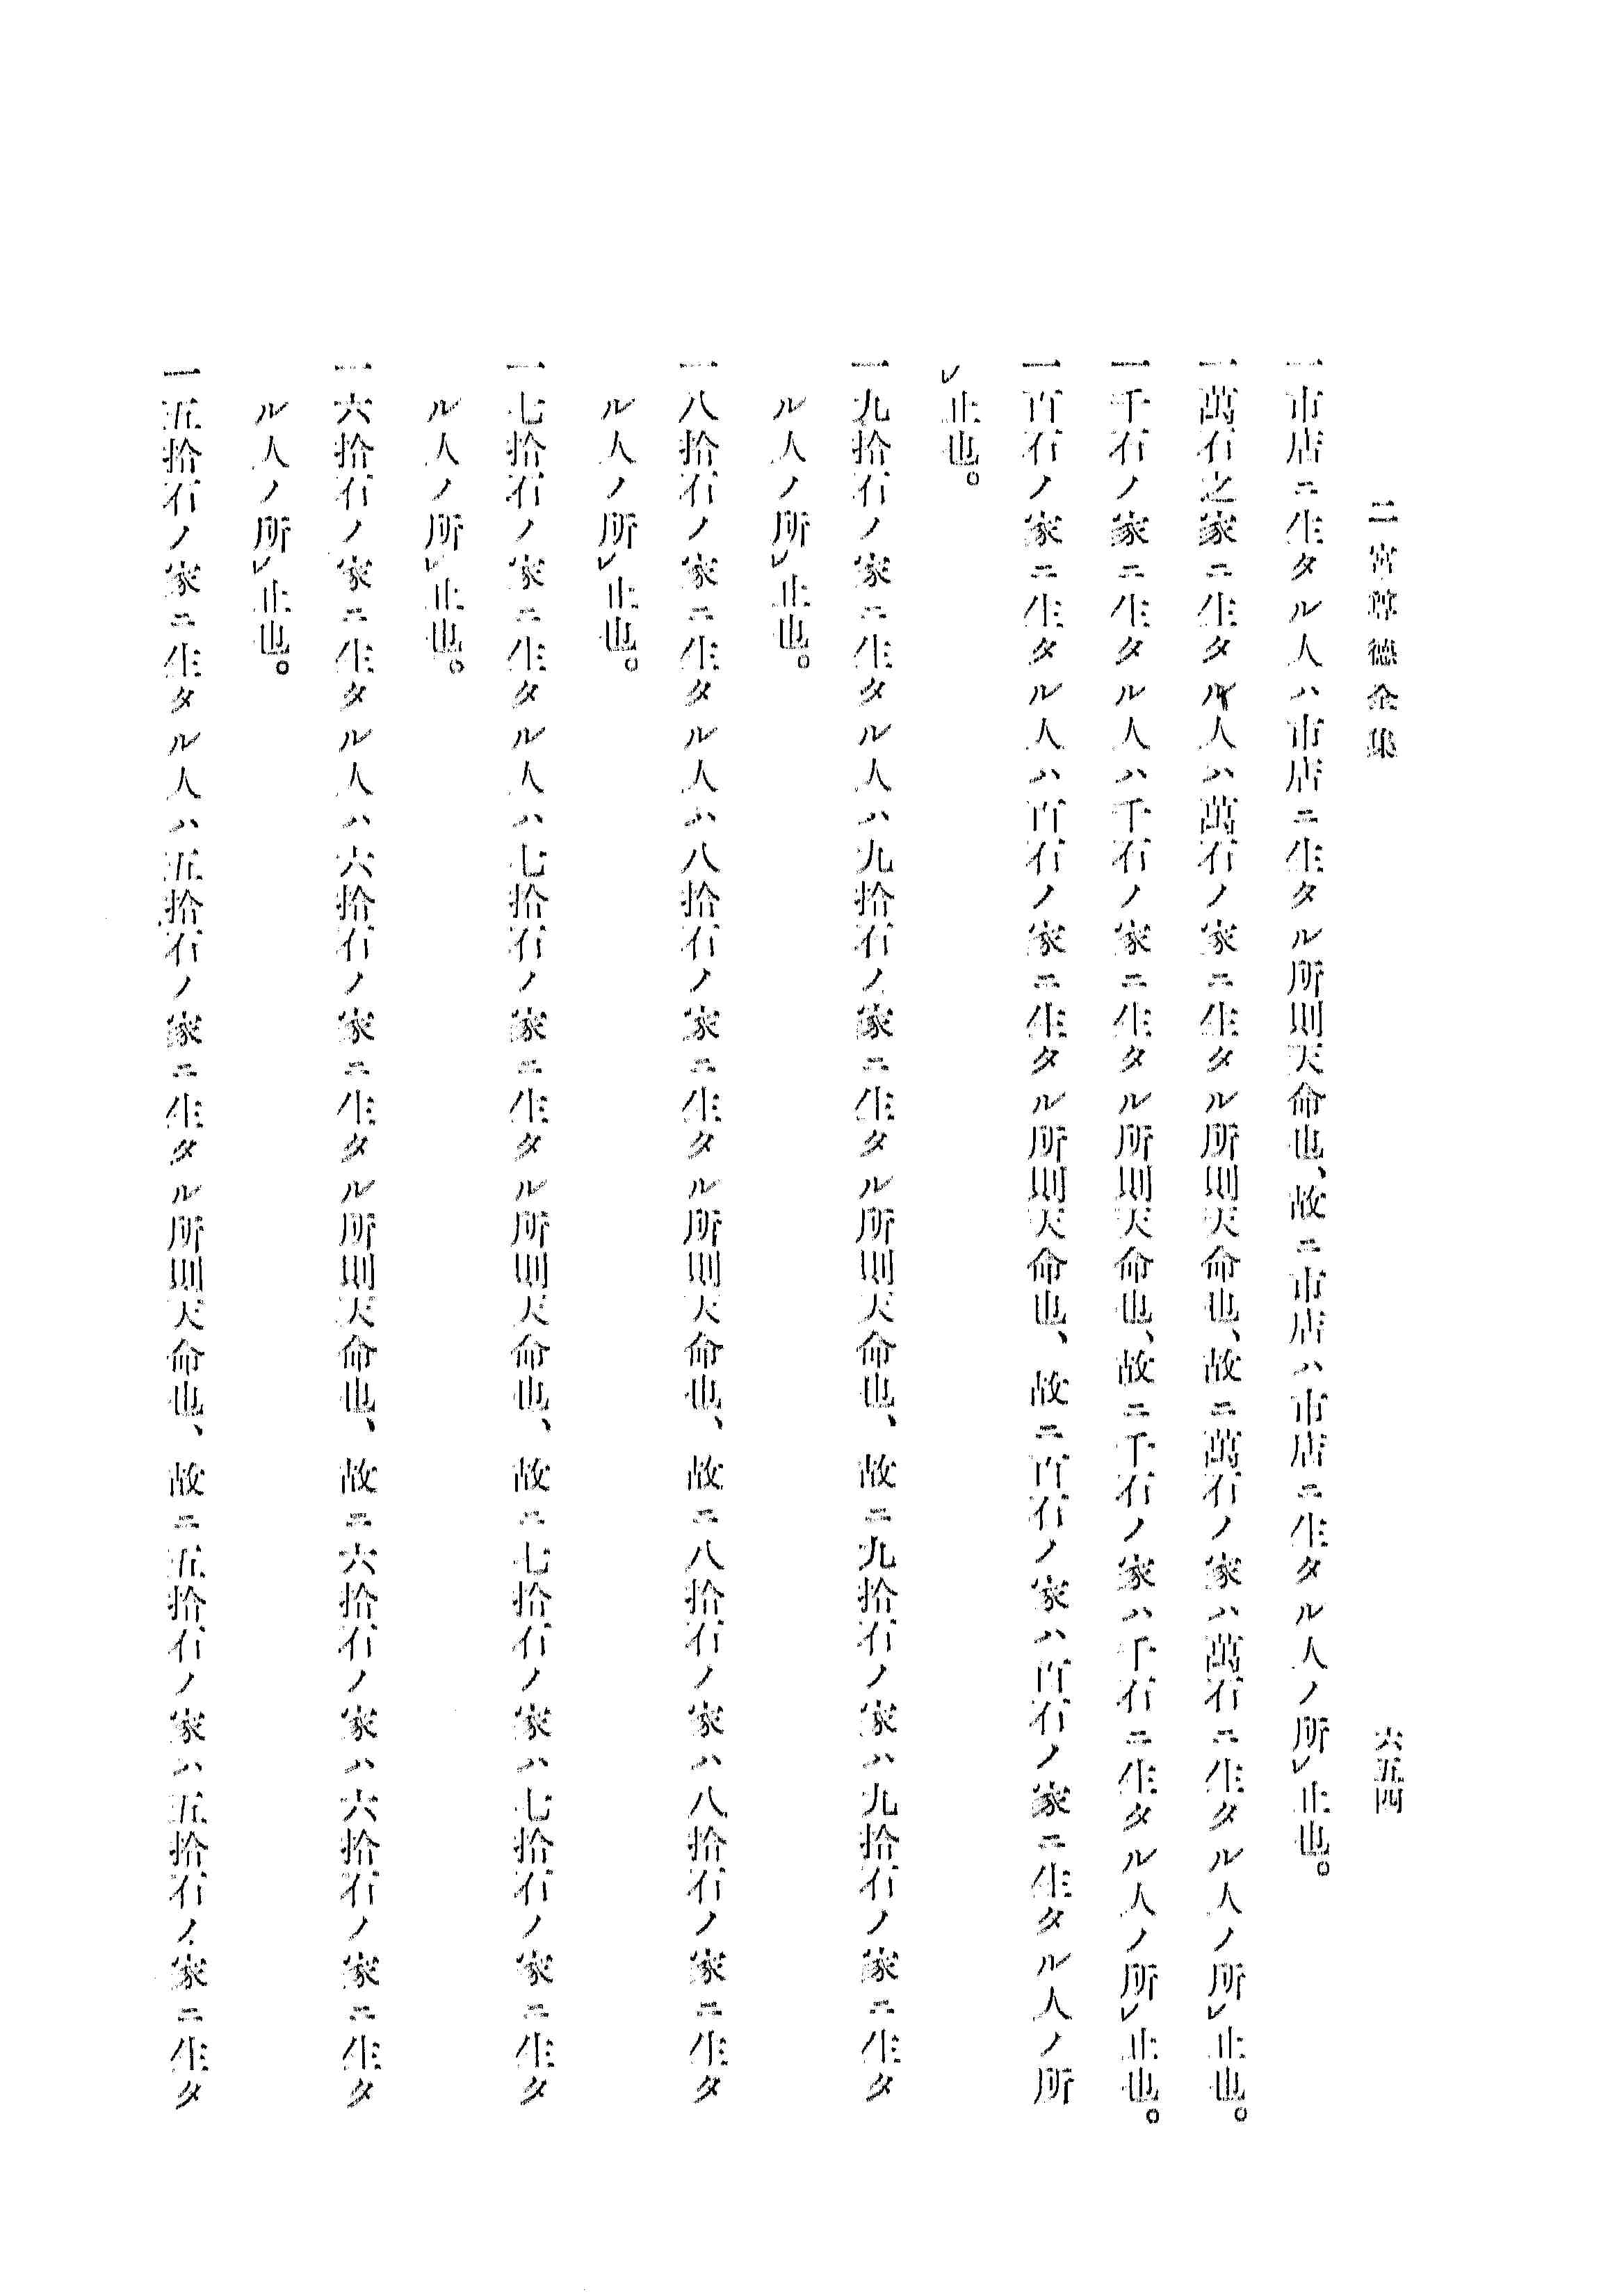 二宮尊徳全集
六五四
一市店ニ生タル人ハ市店ニ生タル所則天命也、故ニ市店ハ市店ニ生タル人ノ所レ止也。
一萬石之家ニ生タル人ハ萬石ノ家ニ生タル所則天命也、故ニ萬石ノ家ハ萬石ニ生タル人ノ所レ止也。
一千石ノ家ニ生タル人ハ千石ノ家ニ生タル所則天命也、故ニ千石ノ家ハ千石ニ生タル人ノ所レ止也。
一百石ノ家ニ生タル人ハ百石ノ家ニ生タル所則天命也、故ニ百石ノ家ハ百石ノ家ニ生タル人ノ所
レ止也。
一九拾石ノ家ニ生タル人ハ九拾石ノ家ニ生タル所則天命也、故ニ九拾石ノ家ハ九拾石ノ家ニ生タ
ル人ノ所レ止也。
一八拾石ノ家ニ生タル人ハ八拾石ノ家ニ生タル所則天命也、故ニ八拾石ノ家ハ八拾石ノ家ニ生タ
ル人ノ所レ止也。
一七拾石ノ家ニ生タル人ハ七拾石ノ家ニ生タル所則天命也、故ニ七拾石ノ家ハ七拾石ノ家ニ生タ
ル人ノ所レ止也。
一六拾石ノ家ニ生タル人ハ六拾石ノ家ニ生タル所則天命也、故ニ六拾石ノ家ハ六拾石ノ家ニ生タ
ル人ノ所レ止也。
一五拾石ノ家ニ生タル人ハ五拾石ノ家ニ生タル所則天命也、故ニ五拾石ノ家ハ五拾石ノ家ニ生タ